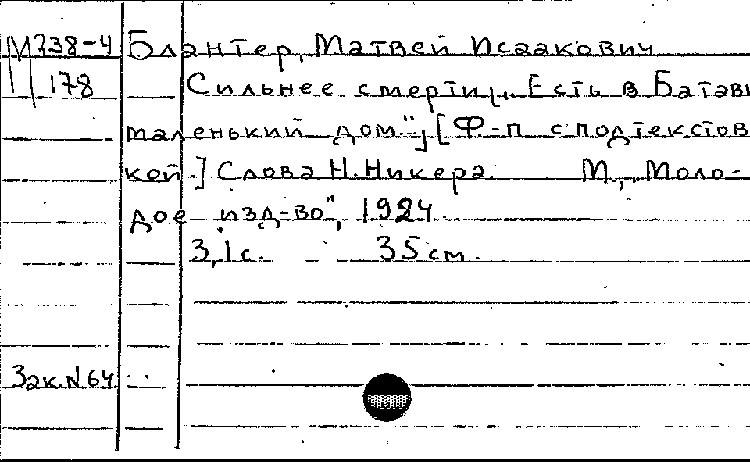 М738-4 Блантер, Матвей Исаакович
178 Сильнее смерти („Есть в Батави
маленький дом"). [Ф-п с подтекстов
кой.] Слова Н. Никера М., „Моло-
дое изд-во", 1924.
3,1с. 35 см.
Зак. N 64